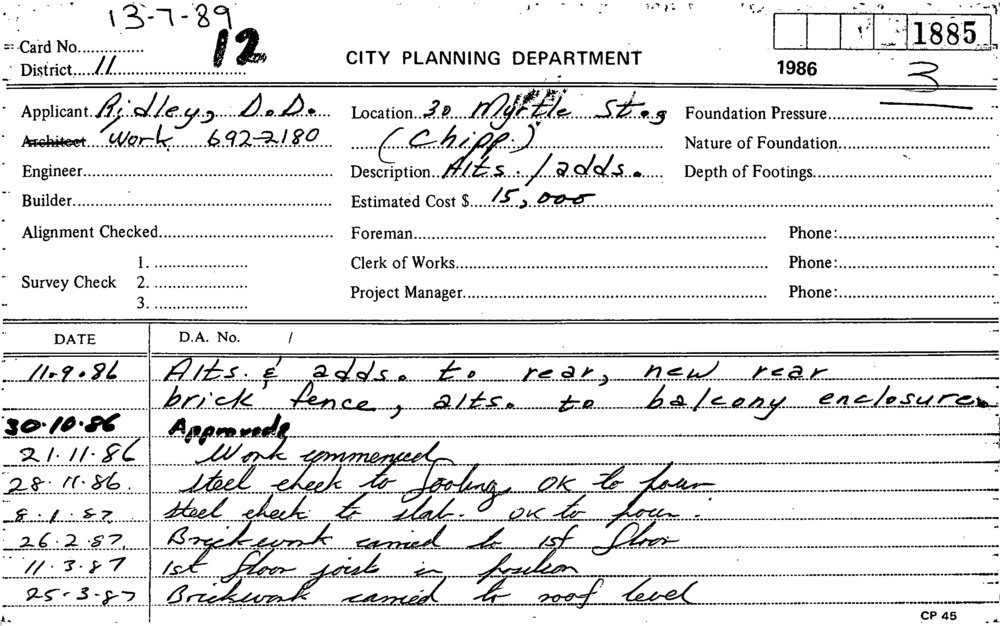 13-7-89
Card No............... 12
District....11
CITY PLANNING DEPARTMENT
1885
1986
3
Applicant Ridley, D.D.
Architect Work 692-2180
Engineer
Builder
Alignment Checked
Survey Check 1.
2.
3.
Location 30 Myrtle St.,
(Chipp.)
Description Alts./adds.
Estimated Cost $ 15,000
Foreman
Clerk of Works
Project Manager
Foundation Pressure
Nature of Foundation
Depth of Footings
Phone:
Phone:
Phone:
DATE D.A. No. /
11.9.86 Alts. & adds. to rear, new rear
brick fence, alts. to balcony enclosure.
30.10.86 Approved
21.11.86 Work commenced
28.11.86. Steel check to footings OK to pour
8.1.87 Steel check to slab. OK to pour.
26.2.87 Brickwork carried to 1st floor
11.3.87 1st floor joists in position
25-3-87 Brickwork carried to roof level
CP 45